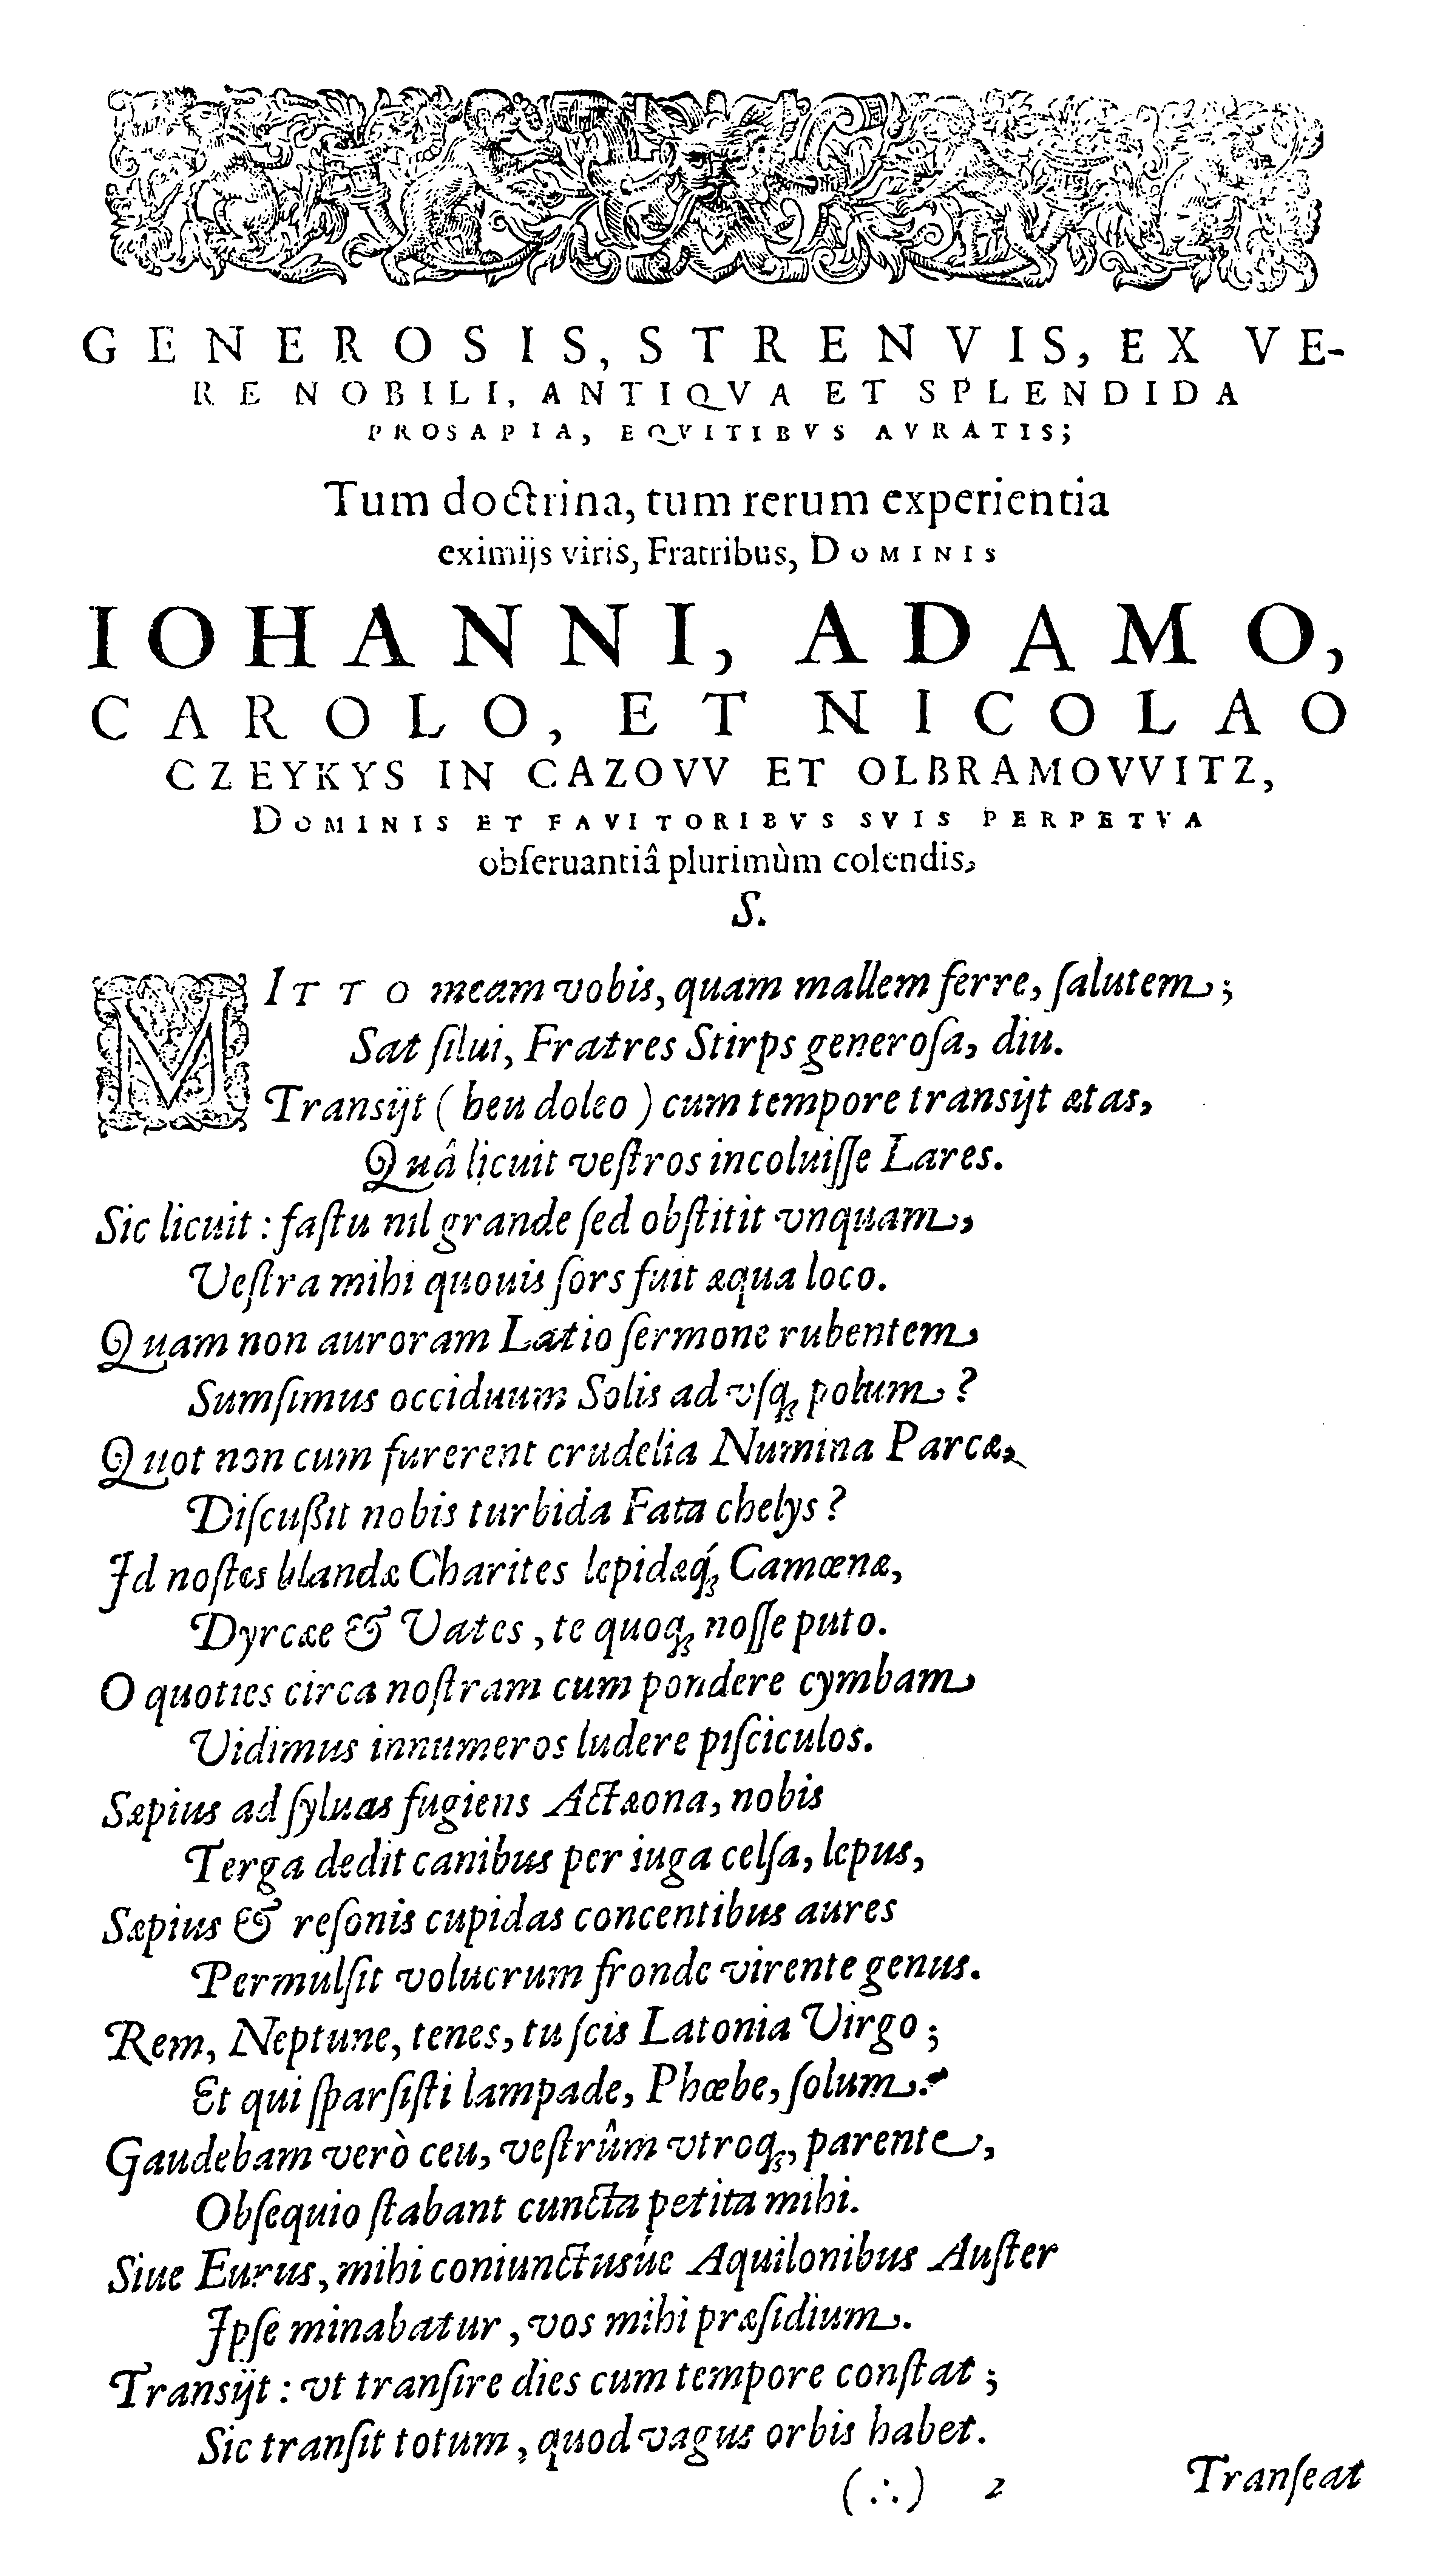 GENEROSIS, STRENVIS, EX VE-
RE NOBILI, ANTIQVA ET SPLENDIDA
PROSAPIA, EQVITIBVS AVRATIS;
Tum doctrina, tum rerum experientia
eximijs viris, Fratribus, DOMINIS
IOHANNI, ADAMO,
CAROLO, ET NICOLAO
CZEYKYS IN CAZOVV ET OLBRAMOVVITZ,
DOMINIS ET FAVITORIBVS SVIS PERPETVA
obſeruantiâ plurimùm colendis,
S.
MITTO meam vobis, quam mallem ferre, ſalutem;
Sat ſilui, Fratres Stirps generoſa, diu.
Transijt (heu doleo) cum tempore transijt ætas,
Quâ licuit veſtros incoluiſſe Lares.
Sic licuit: faſtu nil grande ſed obſtitit vnquam,
Veſtra mihi quouis ſors fuit æqua loco.
Quam non auroram Latio ſermone rubentem
Sumſimus occiduum Solis ad vſq; polum?
Quot non cum furerent crudelia Numina Parcæ,
Diſcußit nobis turbida Fata chelys?
Id noſtes blandæ Charites lepidæq́; Camœnæ,
Dyrcæe & Vates, te quoq; noſſe puto.
O quoties circa noſtram cum pondere cymbam
Vidimus innumeros ludere piſciculos.
Sæpius ad ſyluas fugiens Actæona, nobis
Terga dedit canibus per iuga celſa, lepus,
Sæpius & reſonis cupidas concentibus aures
Permulſit volucrum fronde virente genus.
Rem, Neptune, tenes, tu ſcis Latonia Virgo;
Et qui ſparſiſti lampade, Phœbe, ſolum.
Gaudebam verò ceu, veſtrûm vtroq;, parente,
Obſequio ſtabant cuncta petita mihi.
Siue Eurus, mihi coniunctusúe Aquilonibus Auſter
Ipſe minabatur, vos mihi præſidium.
Transijt: vt tranſire dies cum tempore conſtat;
Sic tranſit totum, quod vagus orbis habet.
(∴) 2 Tranſeat